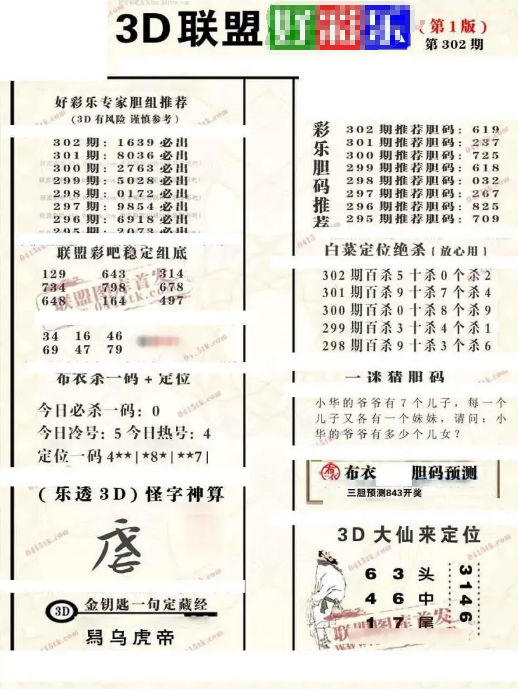 3D联盟好彩乐
（第1版）
第302期
好彩乐专家胆组推荐
（3D有风险 谨慎参考）
302期：1639必出
301期：8036必出
300期：2763必出
299期：5028必出
298期：0172必出
297期：9854必出
296期：6918必出
295期：2073必出
联盟彩吧稳定组底
129 643 314
734 798 678
648 164 497
34 16 46
69 47 79
布衣杀一码+定位
今日必杀一码：0
今日冷号：5今日热号：4
定位一码4**|*8*|**7|
（乐透3D）怪字神算
3D
金钥匙一句定藏经
乌虎帝
彩乐胆码推荐
302期推荐胆码：619
301期推荐胆码：237
300期推荐胆码：725
299期推荐胆码：618
298期推荐胆码：032
297期推荐胆码：267
296期推荐胆码：825
295期推荐胆码：709
白菜定位绝杀（放心用）
302期百杀5十杀0个杀2
301期百杀9十杀7个杀4
300期百杀0十杀8个杀9
299期百杀3十杀4个杀1
298期百杀9十杀3个杀6
一谜猜胆码
小华的爷爷有7个儿子，每一个
儿子又各有一个妹妹，请问：小
华的爷爷有多少个儿女？
布衣 胆码预测
三胆预测843开奖
3D大仙来定位
6 3 头
4 6 中
1 7 尾
3146
联盟图库首发
0415tk.com